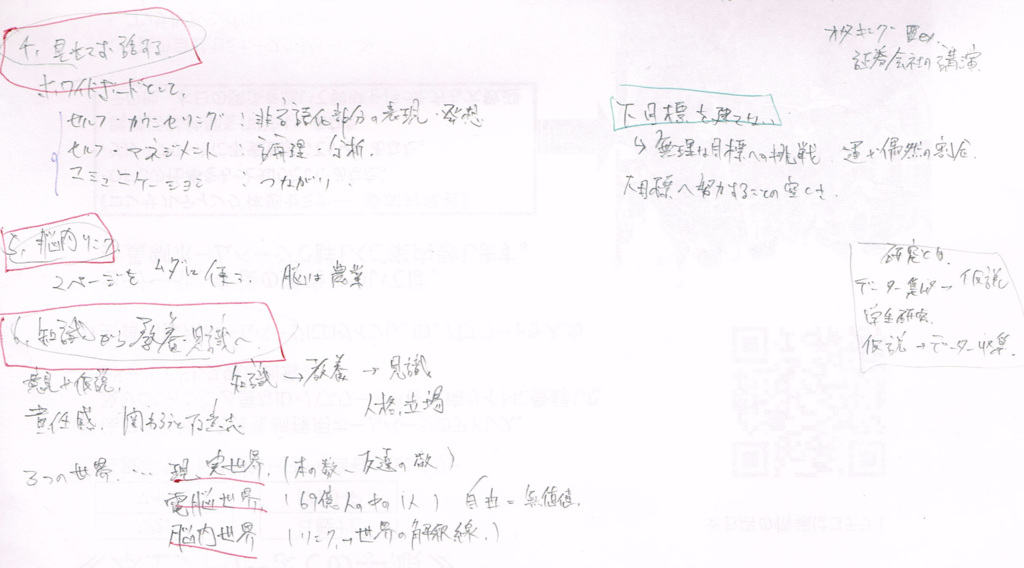 4. 見せてお話する
ホワイトボードとして、
セルフ カウンセリング : 非言語化部分の表現・発想
セルフ マネジメント : 整理・分析.
コミュニケーション : つながり.
5. 脳内リンク
2ページを ムダに使う. 脳は農業
6. 知識から教養・見識へ
意見+仮説.
知識→教養→見識
人格,立場
責任感. 関わろうとする意志
3つの世界・・・現実世界.(本の数、友達の数)
電脳世界.(69億人の中の1人) 自由=無価値.
脳内世界(リンク→世界の解釈線.)
オタキング ex.
証券会社の講演
下目標を建てない
↳無理な目標への挑戦 運や偶然の割合
下目標へ努力することの空しさ.
研究とは、
データー集め→仮説
仮説→データー収集.